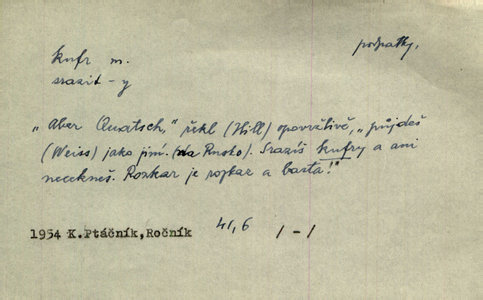 podpatky.
kufr m.
srazit - y
„Aber Quatsch," řekl (Hill) opovržlivě, „půjdeš
(Weiss) jako jiní. (na Rusko). Srazíš kufry a ani
necekneš. Rozkaz je rozkaz a basta!"
1954 K.Ptáčník,Ročník 41,6 1 - 1